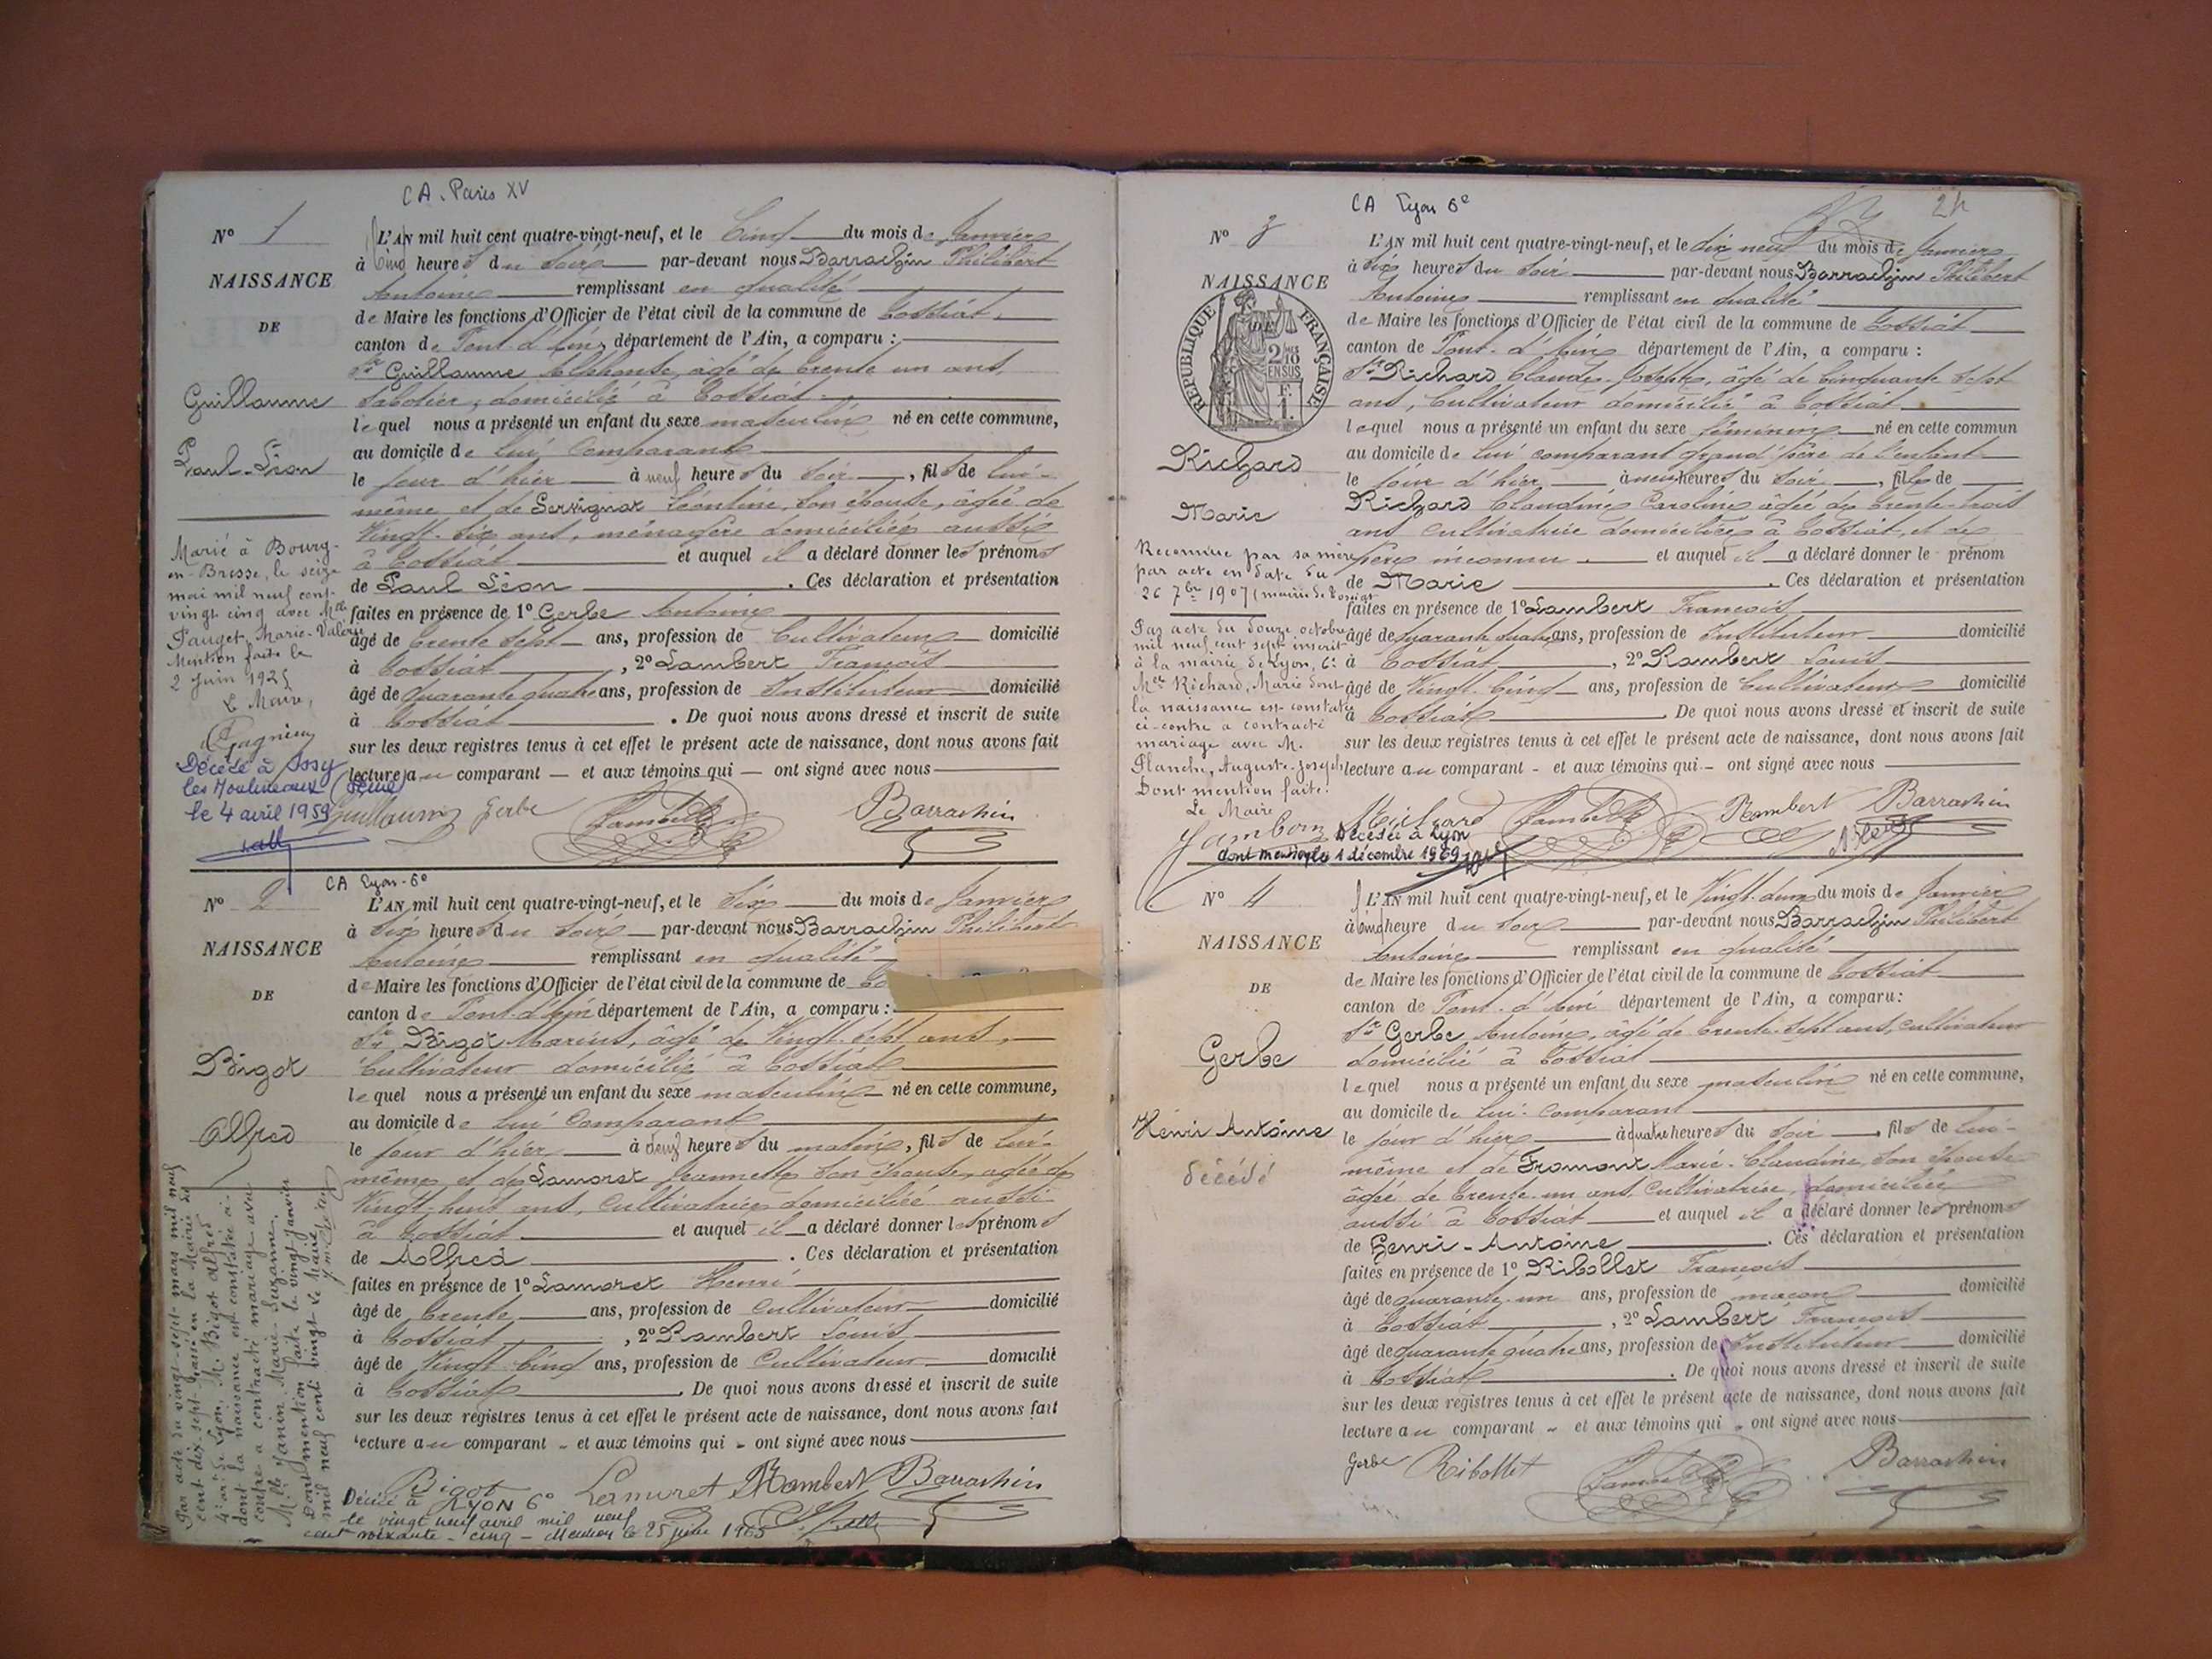 CA. Paris XV
N° 1
NAISSANCE
DE
Guillaume
Paul-Léon
L'AN mil huit cent quatre-vingt-neuf, et le Cinq du mois de Janvier
à Cinq heures du soir par-devant nous Barrachin Philibert
Antoine remplissant en qualité
de Maire les fonctions d'Officier de l'état civil de la commune de Tossiat
canton de Pont-d'Ain, département de l'Ain, a comparu :
Sr Guillaume Alphonse, âgé de trente un ans,
Sabotier, domicilié à Tossiat
lequel nous a présenté un enfant du sexe masculin né en cette commune,
au domicile de lui comparant
le jour d'hier à neuf heures du soir, fils de lui-
même et de Servignat Léontine, son épouse, âgée de
Vingt-six ans, ménagère domiciliée aussi
à Tossiat et auquel il a déclaré donner les prénoms
de Paul Léon. Ces déclaration et présentation
faites en présence de 1° Gerbe Antoine
âgé de trente sept ans, profession de Cultivateur domicilié
à Tossiat, 2° Lambert François
âgé de quarante quatre ans, profession de Instituteur domicilié
à Tossiat. De quoi nous avons dressé et inscrit de suite
sur les deux registres tenus à cet effet le présent acte de naissance, dont nous avons fait
lecture au comparant et aux témoins qui ont signé avec nous
Guillaume Gerbe Lambert Barrachin
Marié à Bourg-
en-Bresse, le seize
mai mil neuf cent
vingt cinq avec Mlle
Pauget, Marie-Valérie
Mention faite le
2 Juin 1925
Le Maire,
Décédé à Issy
les Moulineaux (Seine)
le 4 avril 1959
CA Lyon-6e
N° 2
NAISSANCE
DE
Bigot
Alfred
L'AN mil huit cent quatre-vingt-neuf, et le Six du mois de Janvier
à Six heures du soir par-devant nous Barrachin Philibert
Antoine remplissant en qualité
de Maire les fonctions d'Officier de l'état civil de la commune de
canton de Pont-d'Ain département de l'Ain, a comparu :
Sr Bigot Marius, âgé de Vingt-sept ans,
Cultivateur domicilié à Tossiat
lequel nous a présenté un enfant du sexe masculin né en cette commune,
au domicile de lui comparant
le jour d'hier à heures du matin, fils de lui-
même et de Lamoret Jeannette son épouse, âgée de
Vingt-huit ans, cultivatrice domiciliée aussi
à Tossiat et auquel il a déclaré donner les prénoms
de Alfred. Ces déclaration et présentation
faites en présence de 1° Lamoret Henri
âgé de trente ans, profession de cultivateur domicilié
à Tossiat, 2° Rambert Louis
âgé de Vingt Cinq ans, profession de Cultivateur domicilié
à Tossiat. De quoi nous avons dressé et inscrit de suite
sur les deux registres tenus à cet effet le présent acte de naissance, dont nous avons fait
lecture au comparant et aux témoins qui ont signé avec nous
Bigot Lamoret Rambert Barrachin
Par acte du vingt-sept mars mil neuf
cent dix-sept, passé en la Mairie du
4e arrt de Lyon, M. Bigot Alfred
dont la naissance est constatée ci-
contre a contracté mariage avec
Mlle Janin, Marie-Suzanne.
Dont mention faite le vingt Janvier
mil neuf cent vingt Le Maire
Décédé à LYON 6°
le vingt neuf avril mil neuf
cent soixante-cinq - Mention le 25 juin 1965
CA Lyon 6e
24
N° 3
NAISSANCE
DE
RÉPUBLIQUE FRANÇAISE
2/10 EN SUS
1 F.
Richard
Marie
L'AN mil huit cent quatre-vingt-neuf, et le dix neuf du mois de Janvier
à Six heures du soir par-devant nous Barrachin Philibert
Antoine remplissant en qualité
de Maire les fonctions d'Officier de l'état civil de la commune de Tossiat
canton de Pont-d'Ain département de l'Ain, a comparu :
Sr Richard Claude-Joseph, âgé de Cinquante sept
ans, Cultivateur domicilié à Tossiat
lequel nous a présenté un enfant du sexe féminin né en cette commun
au domicile de lui comparant grand père de l'enfant
le jour d'hier à neuf heures du soir, fille de
Richard Claudine Caroline âgée de trente-trois
ans cultivatrice domiciliée à Tossiat, et de
père inconnu et auquel il a déclaré donner le prénom
de Marie. Ces déclaration et présentation
faites en présence de 1° Lambert François
âgé de quarante quatre ans, profession de Instituteur domicilié
à Tossiat, 2° Rambert Louis
âgé de Vingt Cinq ans, profession de Cultivateur domicilié
à Tossiat. De quoi nous avons dressé et inscrit de suite
sur les deux registres tenus à cet effet le présent acte de naissance, dont nous avons fait
lecture au comparant et aux témoins qui ont signé avec nous
Richard Lambert Rambert Barrachin
Reconnue par sa mère
par acte en date du
26 7bre 1907 (mairie de Tossiat
Par acte du douze octobre
mil neuf cent sept inscrit
à la mairie de Lyon, 6e
Mlle Richard, Marie dont
la naissance est constatée
ci-contre a contracté
mariage avec M.
Planche, Auguste-Joseph
Dont mention faite.
Le Maire
Jambon
Décédée à Lyon
dont mention le 1 décembre 1969
N° 4
NAISSANCE
DE
Gerbe
Henri Antoine
décédé
L'AN mil huit cent quatre-vingt-neuf, et le Vingt-deux du mois de Janvier
à cinq heure du soir par-devant nous Barrachin Philibert
Antoine remplissant en qualité
de Maire les fonctions d'Officier de l'état civil de la commune de Tossiat
canton de Pont-d'Ain département de l'Ain, a comparu :
Sr Gerbe Antoine, âgé de trente-sept ans, cultivateur
domicilié à Tossiat
lequel nous a présenté un enfant du sexe masculin né en cette commune,
au domicile de lui-comparant
le jour d'hier à quatre heures du soir, fils de lui-
même et de Fromont Marie-Claudine, son épouse
âgée de trente-un ans, cultivatrice, domiciliée
aussi à Tossiat et auquel il a déclaré donner les prénoms
de Henri-Antoine. Ces déclaration et présentation
faites en présence de 1° Ribollet François
âgé de quarante-un ans, profession de maçon domicilié
à Tossiat, 2° Lambert François
âgé de quarante quatre ans, profession de Instituteur domicilié
à Tossiat. De quoi nous avons dressé et inscrit de suite
sur les deux registres tenus à cet effet le présent acte de naissance, dont nous avons fait
lecture au comparant et aux témoins qui ont signé avec nous
Gerbe Ribollet Lambert Barrachin